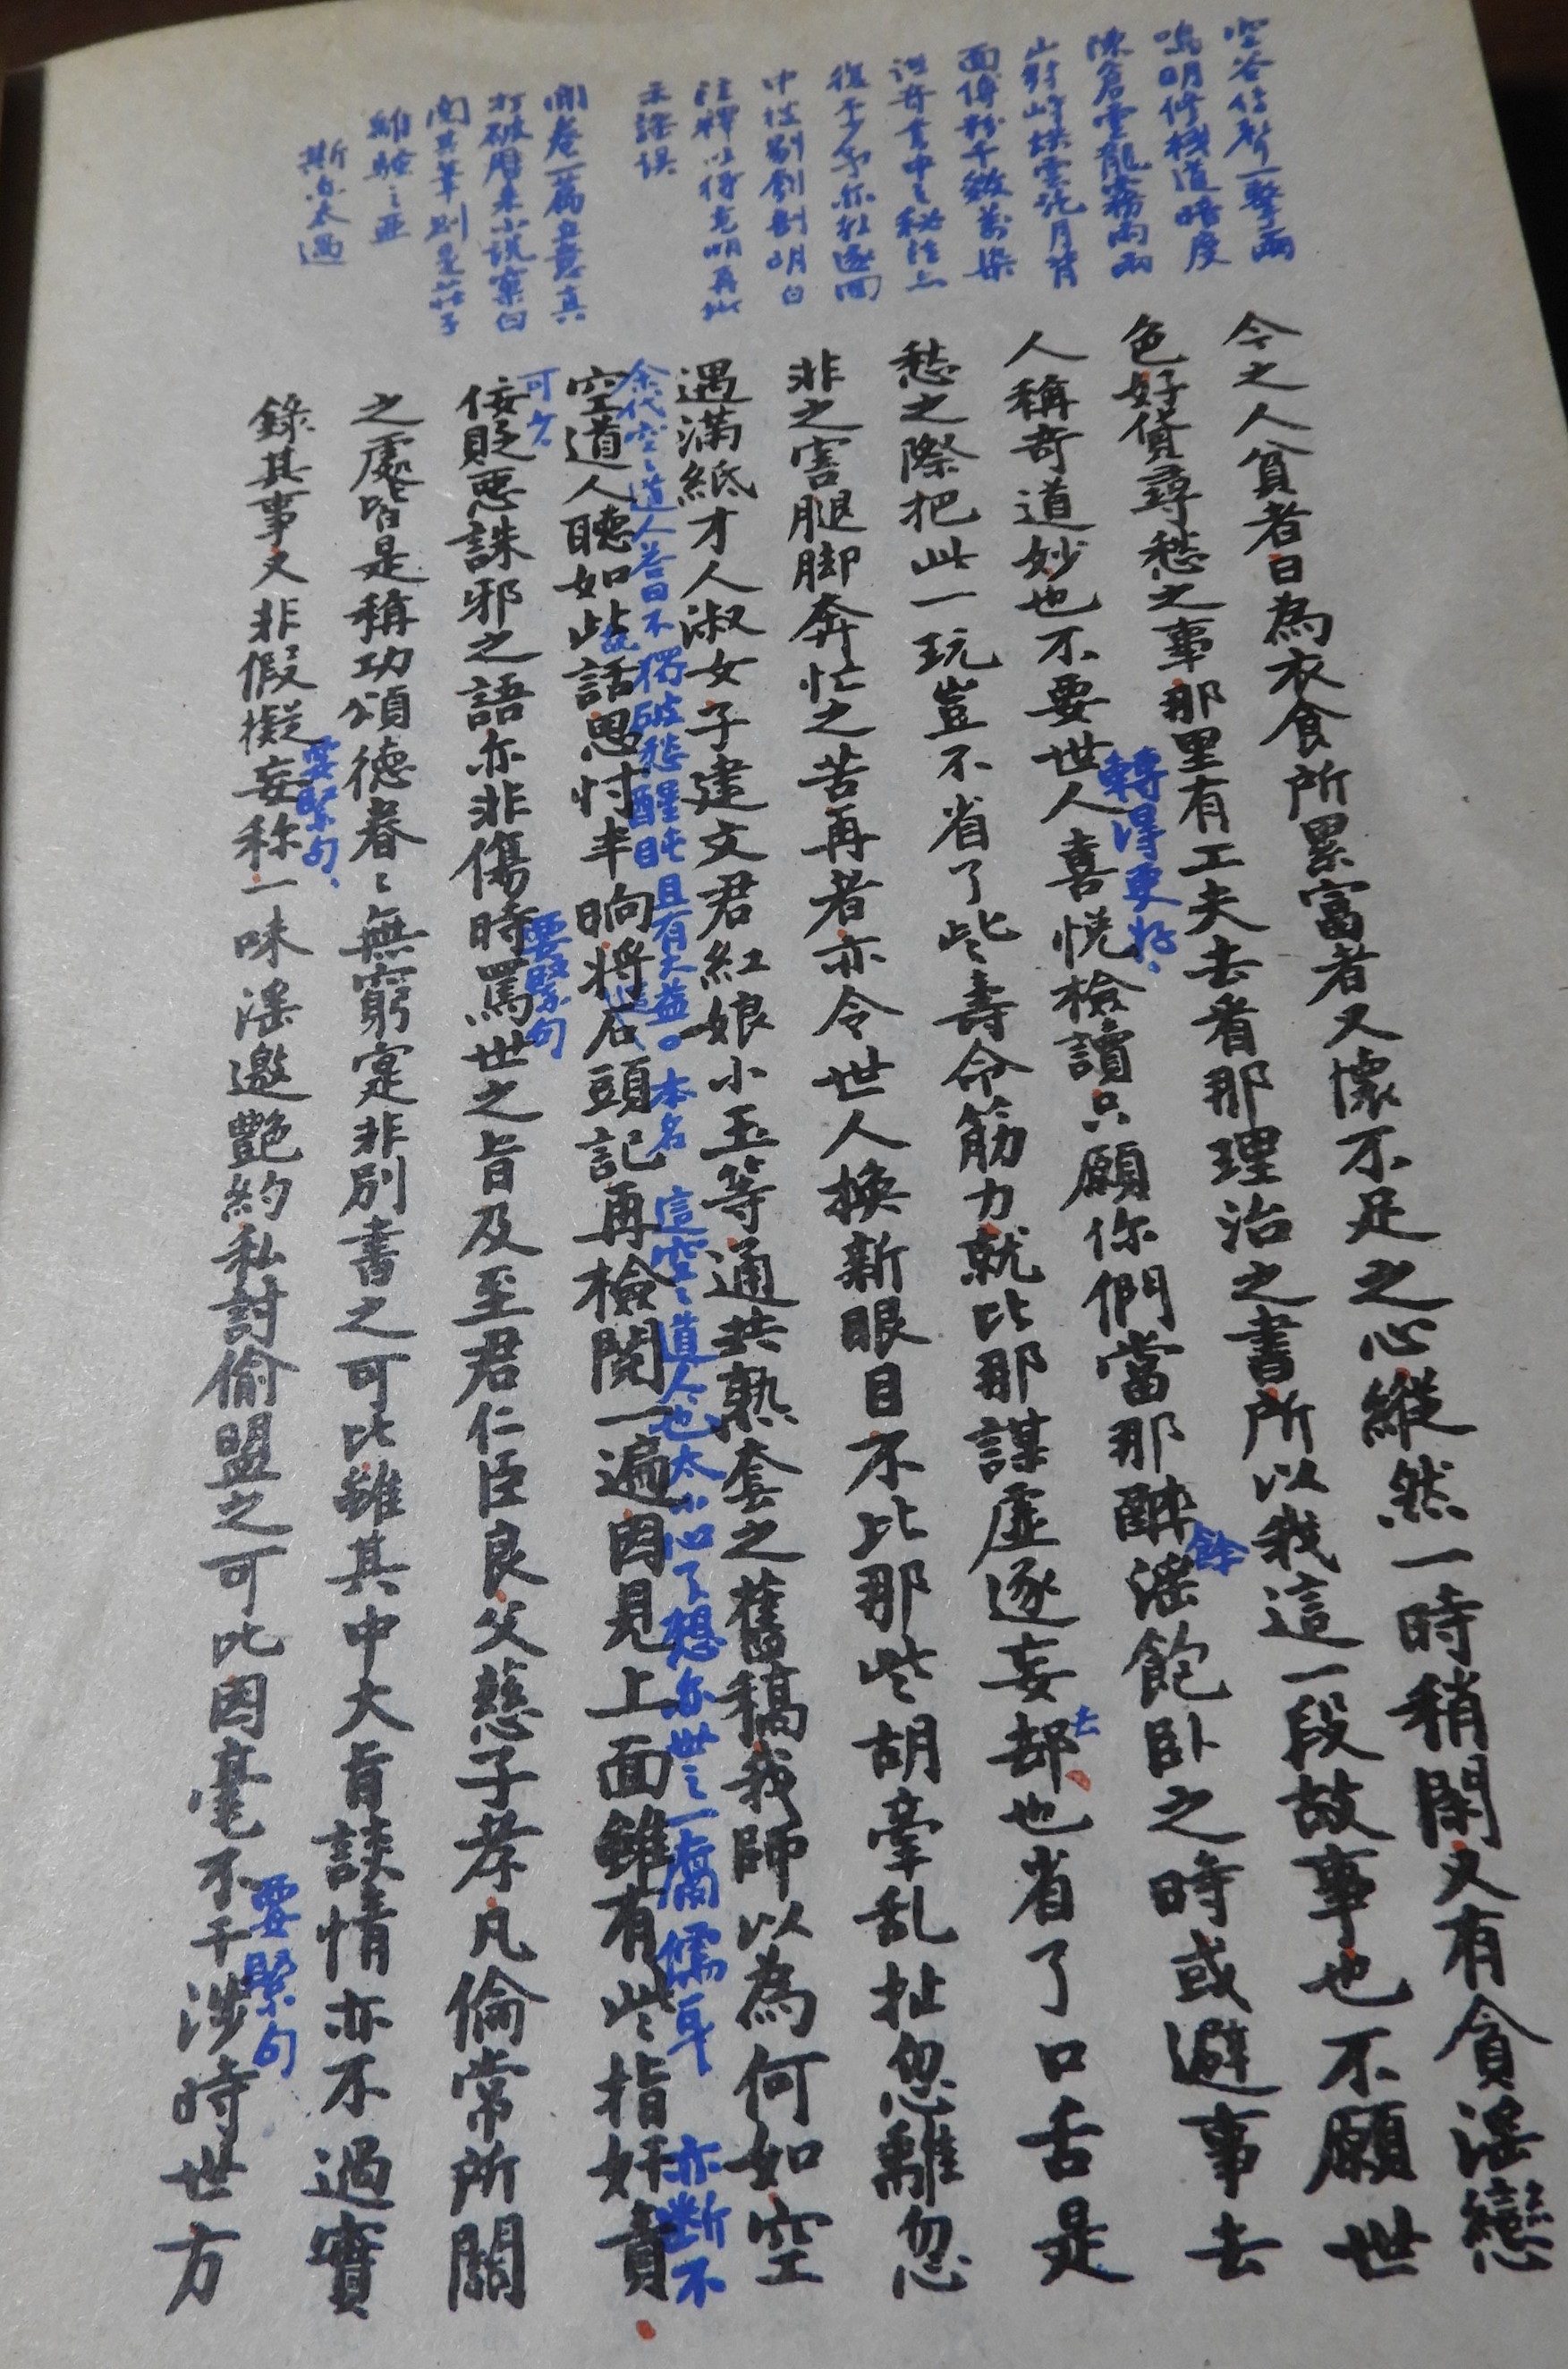 空谷传聲一擊兩
鳴明修棧道暗度
陳倉雲龍霧雨兩
山對峙烘雲托月背
面傅粉千皴萬染
諸奇書中之秘法亦
復不少予亦於逐回
中搜剔刳剖明白
註釋以待高明再批
示謬誤
開卷一篇立意真
打破歷來小說窠臼
閱其筆則是莊子
離騷之亞
斯亦太過
今之人貧者日為衣食所累富者又懷不足之心縱然一時稍閑又有貪淫戀
色好貨尋愁之事那里有工夫去看那理治之書所以我這一段故事也不願世
轉得更好
餘
人稱奇道妙也不要世人喜悅檢讀只願你們當那醉淫飽卧之時或避事去
去
愁之際把此一玩豈不省了些壽命筋力就比那謀虛逐妄却也省了口舌是
非之害腿脚奔忙之苦再者亦令世人換新眼目不比那些胡牽乱扯忽離忽
遇滿紙才人淑女子建文君紅娘小玉等通共熟套之舊稿我師以為何如空
余代空〻道人答曰不獨破愁醒盹且有大益。本名
這空〻道人也太小心了想亦世之一腐儒耳
亦斷不
空道人聽如此話思忖半晌將石頭記再檢閱一遍因見上面雖有些指奸責
可少
要緊句
佞貶惡誅邪之語亦非傷時罵世之旨及至君仁臣良父慈子孝凡倫常所關
之處皆是稱功頌德眷〻無窮寔非別書之可比雖其中大旨談情亦不過實
要緊句
要緊句
錄其事又非假擬妄称一味淫邀艷約私討偷盟之可比因毫不干涉時世方